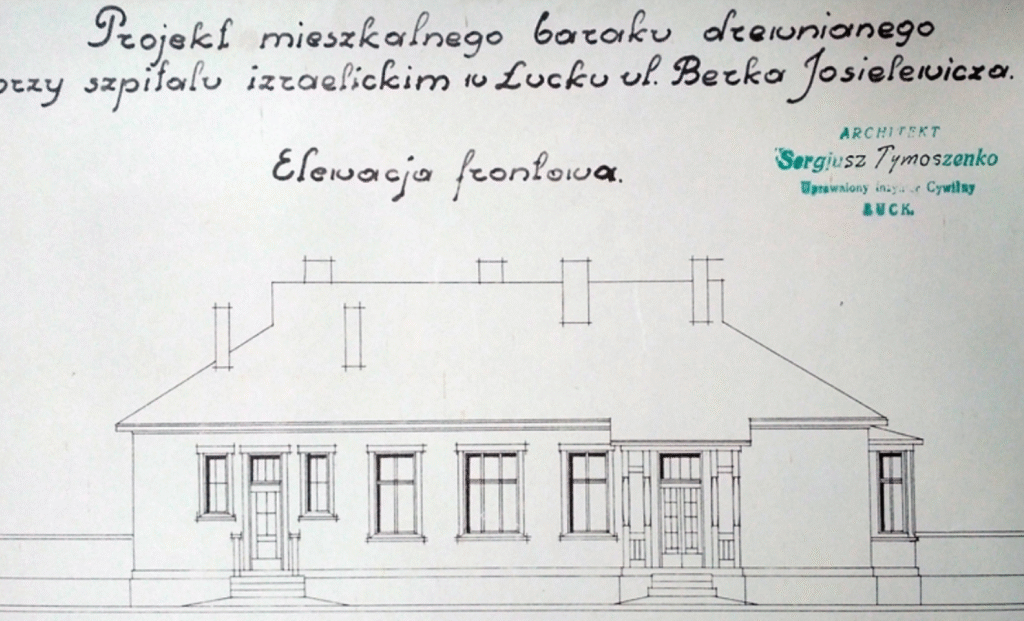 Projekt mieszkalnego baraku drewnianego
przy szpitalu izraelickim w Łucku ul. Berka Josielewicza.
Elewacja frontowa.
ARCHITEKT
Sergjusz Tymoszenko
Uprawniony inżynier Cywilny
ŁUCK.